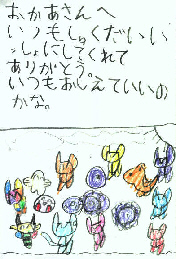 おかあさんへ
いつもしゅくだいい
っしょにしてくれて
ありがとう。
いつもおしえていいの
かな。